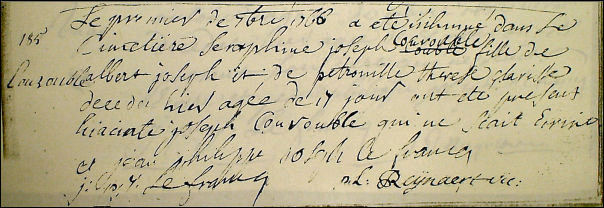 Le premier de 7bre 1766 a eté inhumé dans Le
185
Cimetière Seraphine joseph Couvouble fille de
Couvouble albert joseph et de petronille therese
decedee hier agée de 17 jours ont eté presens
hiacinte joseph Couvouble qui ne scait Ecrire
et jean philippe joseph Le francq
j. p. j. Le francq ph. Reijnaert vic: